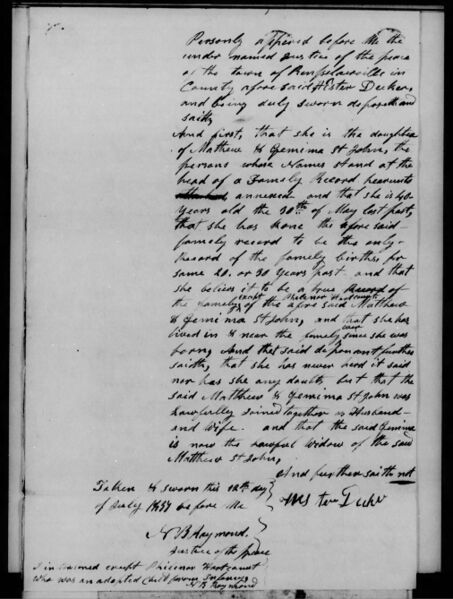 Personly appired before Me the
under named Justice of the peace
of the town of Renselaerville in
County afore said Hester Decker,
and being duly sworn deposeth and
saith,
And first, that she is the daughter
of Mathew & Gemima St John, the
persons whose Names stand at the
head of a Famely Record hereunto
annexed and that she is 40
Years old the 30th of May last past,
that she has Known the afore said
famely record to be the only
Record of the famely births, for
some 20. or 30 Years past. and that
she belives it to be a true Record of
the namely, except Philenor Hartsaugh of the afore said Matthew
& Gemima St John, and that she has
lived in & near the famely ever since she was
born, And the said deponant further
saith, that she has never herd it said
nor has she any doubts but that the
said Matthew & Gemima St John was
Lawfully Joined together as Husband
and Wife. and that the said Gemima
is now the Lawful Widow of the said
Matthew St John,
And further saith not
Taken & sworn this 12th day
of July 1837 before Me
N B Raymond.
Justice of the peace
except Philenor
who was an adopted Child from Infancy
N B Raymond